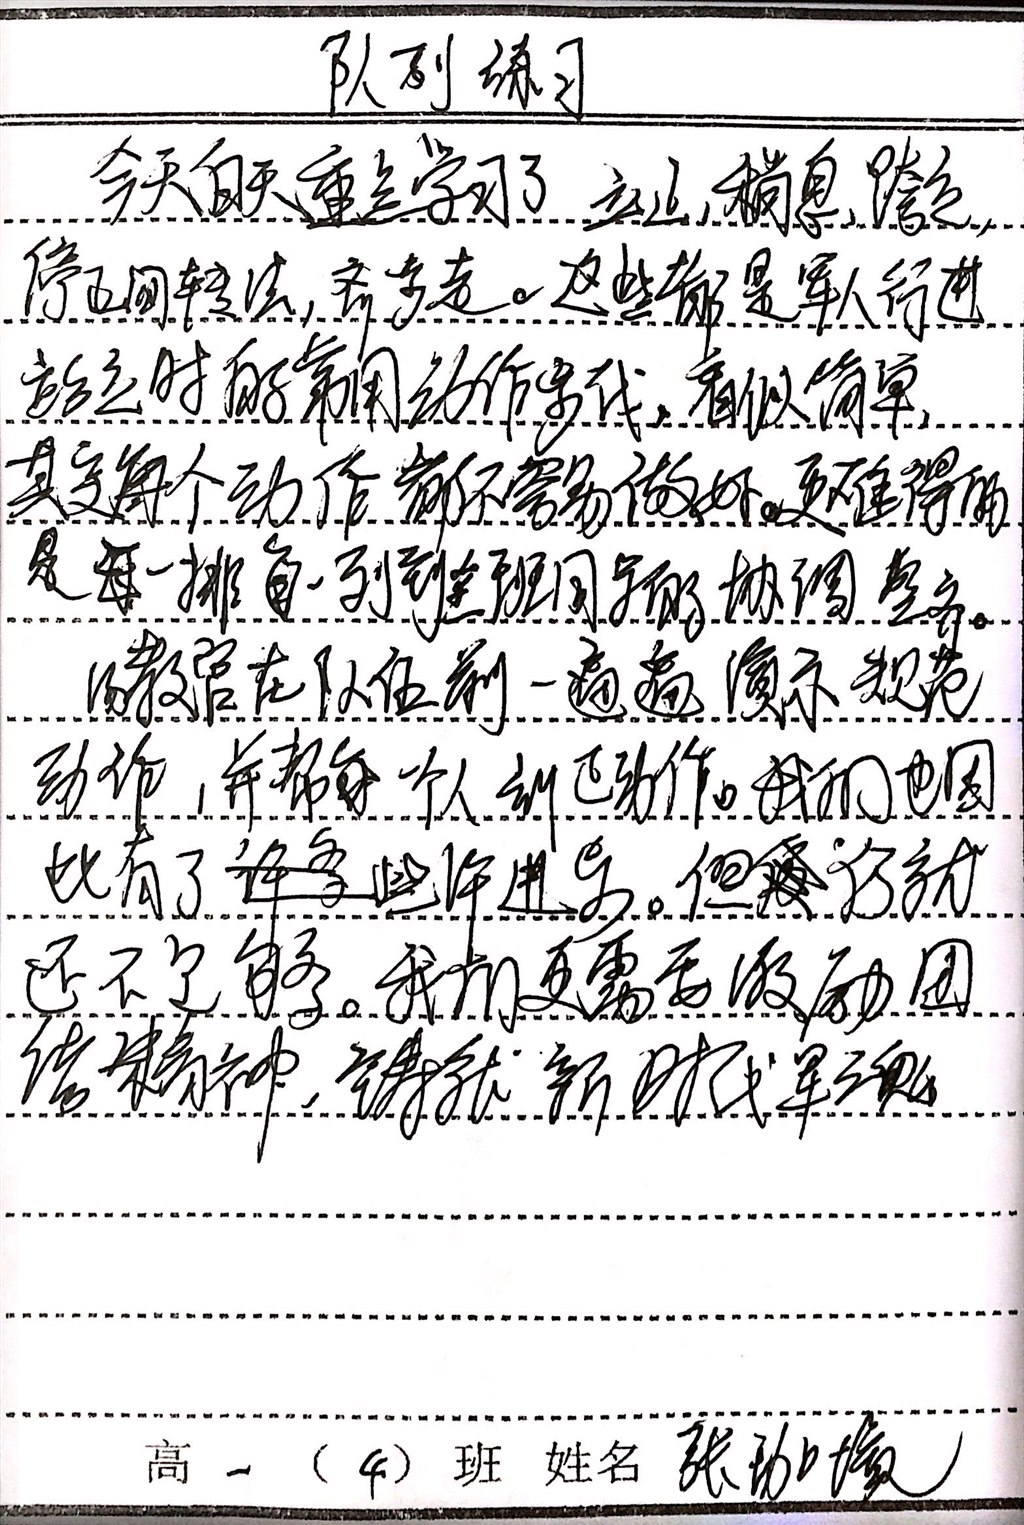 队列练习
今天白天重点学习了立正,稍息,跨立,
停止间转法,齐步走。这些都是军人行进
站立时的常用动作步伐,看似简单,
其实每个动作都不容易做好。更难得的
是每一排每一列到全班同学的协调整齐。
教官在队伍前一遍遍演示规范
动作,并帮每个人纠正动作。我们也因
此有了些许进步。但仍就
还不足够。我们更需要激励团
结精神,铸就新时代军魂
高一(4)班 姓名 张